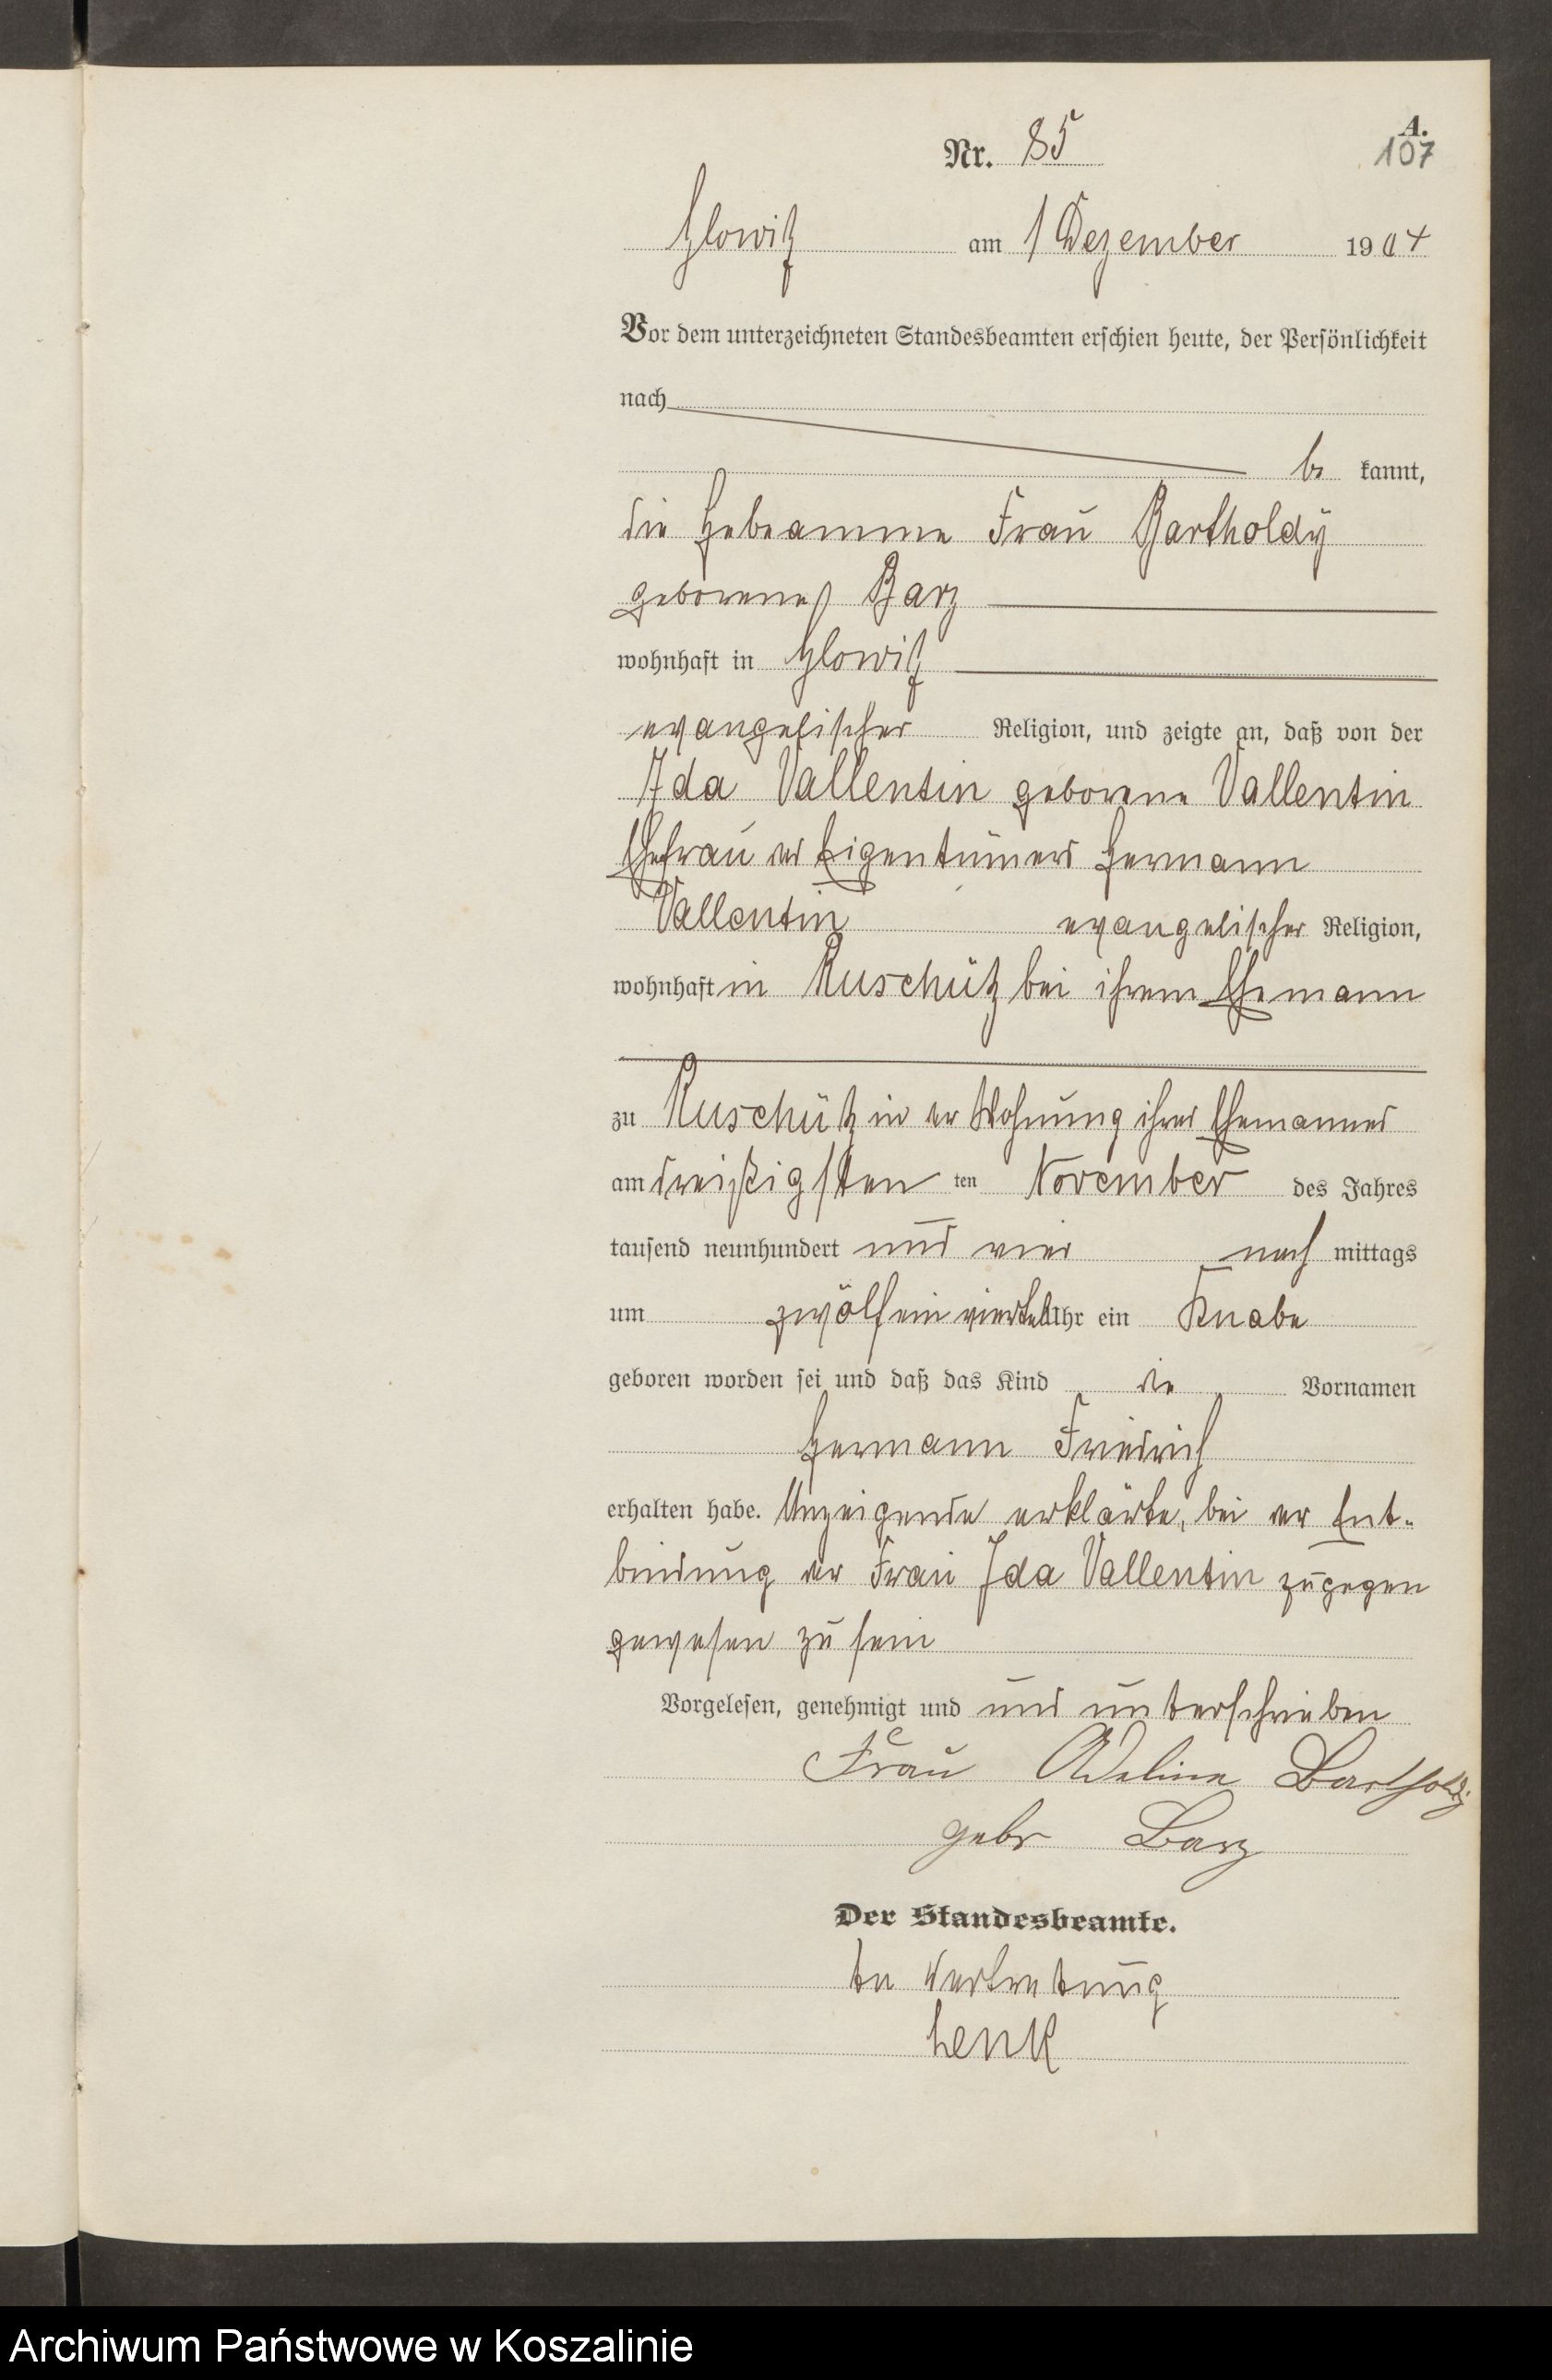 A.
Nr. 85 107
Glowitz am 1 Dezember 1904
Vor dem unterzeichneten Standesbeamten erschien heute, der Persönlichkeit
nach
be kannt,
die Hebeamme Frau Bartholdy
geborene Barz
wohnhaft in Glowitz
evangelischer Religion, und zeigte an, daß von der
Ida Vallentin geborene Vallentin
Ehefrau des Eigentümers Hermann
Vallentin evangelischer Religion,
wohnhaft in Ruschütz bei ihrem Ehemann
zu Ruschütz in der Wohnung ihres Ehemannes
am dreißigsten ten November des Jahres
tausend neunhundert und vier nach mittags
um zwölf ein viertel Uhr ein Knabe
geboren worden sei und daß das Kind die Vornamen
Hermann Friedrich
erhalten habe. Anzeigende erklärte, bei der Ent-
bindung der Frau Ida Vallentin zugegen
gewesen zu sein
Vorgelesen, genehmigt und und unterschrieben
Frau Adeline Bartholdy
gebr Barz
Der Standesbeamte.
In Vertretung
Henk
Archiwum Państwowe w Koszalinie